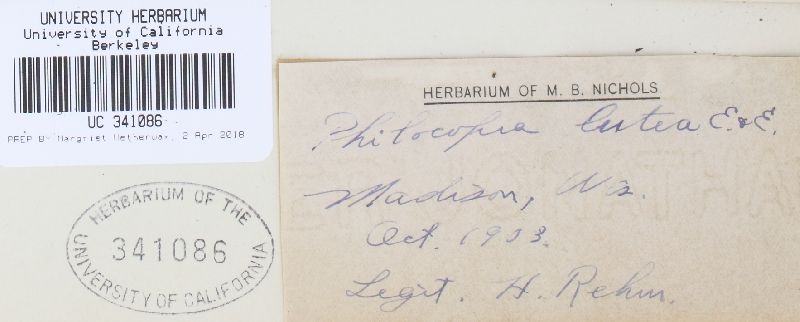 UNIVERSITY HERBARIUM
University of California
Berkeley
UC 341086
PREP BY Margriet Wetherwax, 2 Apr 2018
HERBARIUM OF THE
341086
UNIVERSITY OF CALIFORNIA
HERBARIUM OF M. B. NICHOLS
Philocopra lutea E. & E.
Madison, Wis.
Oct. 1903.
Legit. H. Rehm.